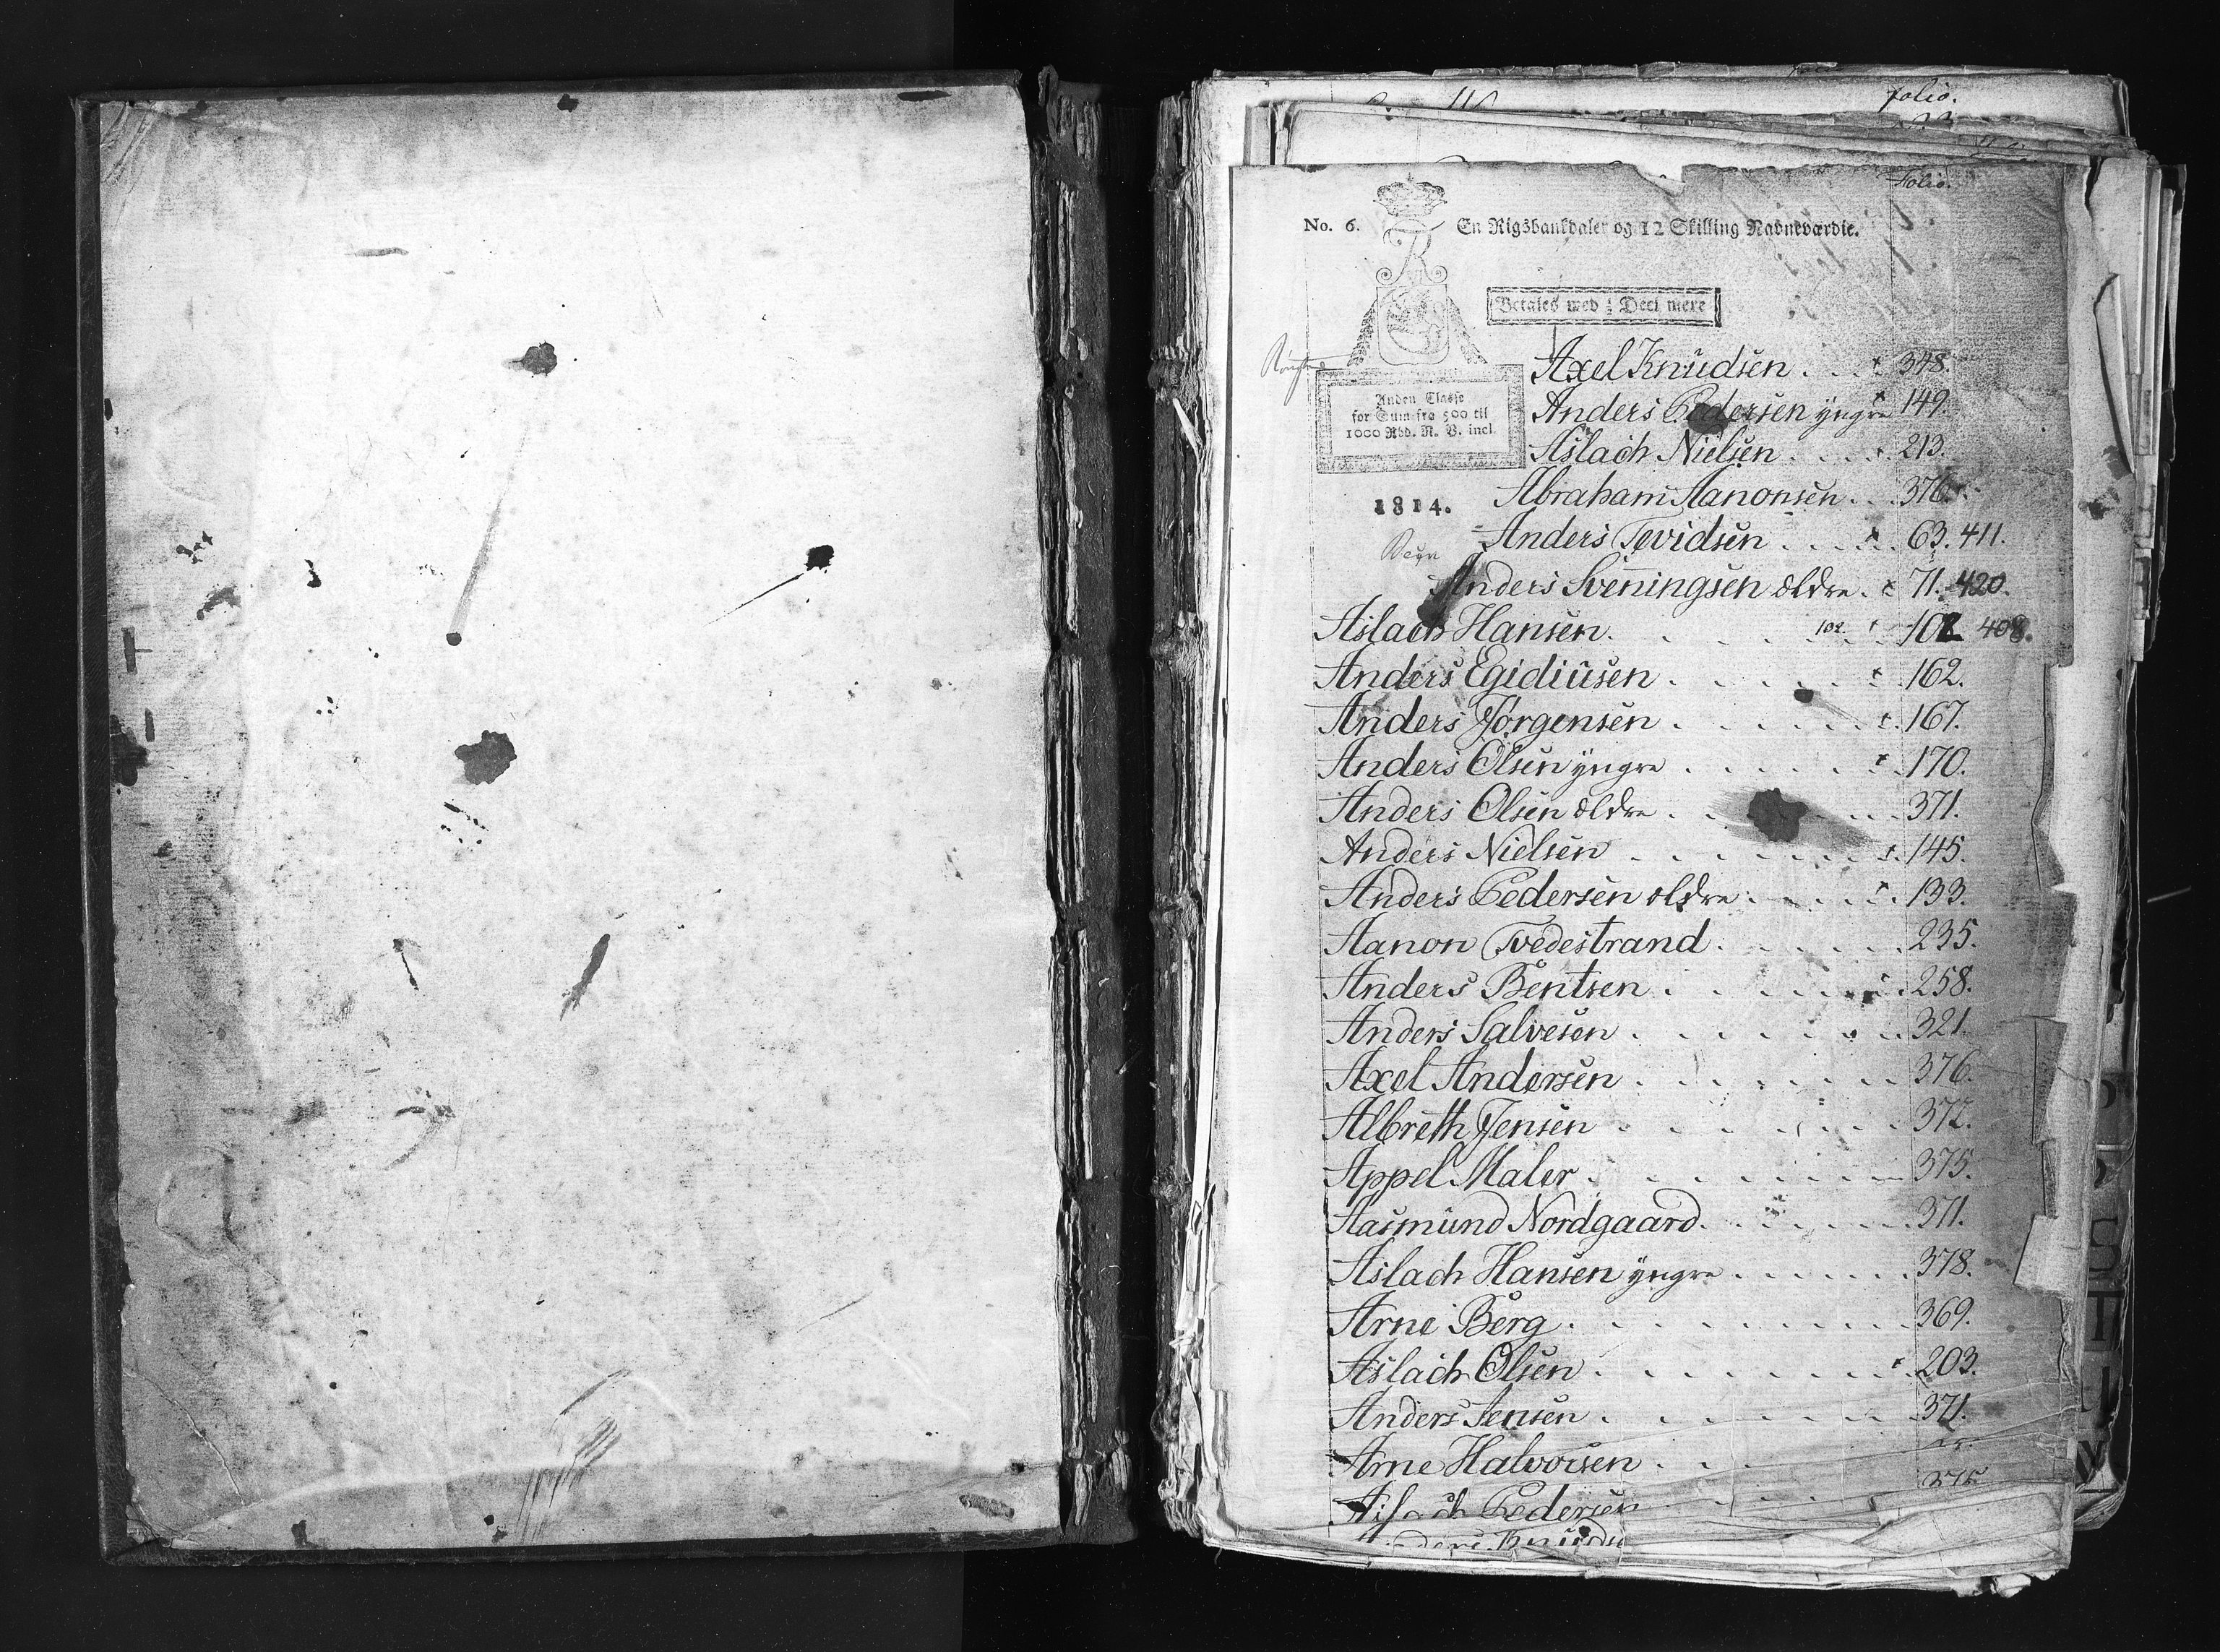 folio.
Folio.
No. 6. En Rigsbankdaler og 12 Skilling Navneværdie.
R
Betales med ½ Deel mere
Axel Knudsen . . . 348.
Anden Classe
for Sum fra 500 til
1000 Rbd. N. V. incl.
Anders Pedersen yngre 149.
Aslach Nielsen . . . 213.
1814.
Abraham Aanonsen . . 376.
Anders Tevidsen . . . . 63. 411.
Anders Sveningsen ældre . 71. 420.
Aslach Hansen. . . . 102. 102 408.
Anders Egidiusen . . . . . 162.
Anders Jørgensen . . . . . 167.
Anders Olsen yngre . . . . . 170.
Anders Olsen ældre . . . . 371.
Anders Nielsen . . . . . . 145.
Anders Pedersen ældre . . . . 133.
Aanon Tvedestrand . . . . . 235.
Anders Bentsen . . . . . . 258.
Anders Salvesen . . . . . . 321.
Axel Andersen . . . . . . 376.
Albreth Jensen . . . . . . 372.
Appel Maler . . . . . . . 375.
Aasmund Nordgaard . . . . . 371.
Aslach Hansen yngre . . . . . 378.
Arne Berg . . . . . . . . 369.
Aslach Olsen . . . . . . . 203.
Anders Jensen . . . . . . 371.
Arne Halvorsen . .
Aslach Pedersen . . . 375